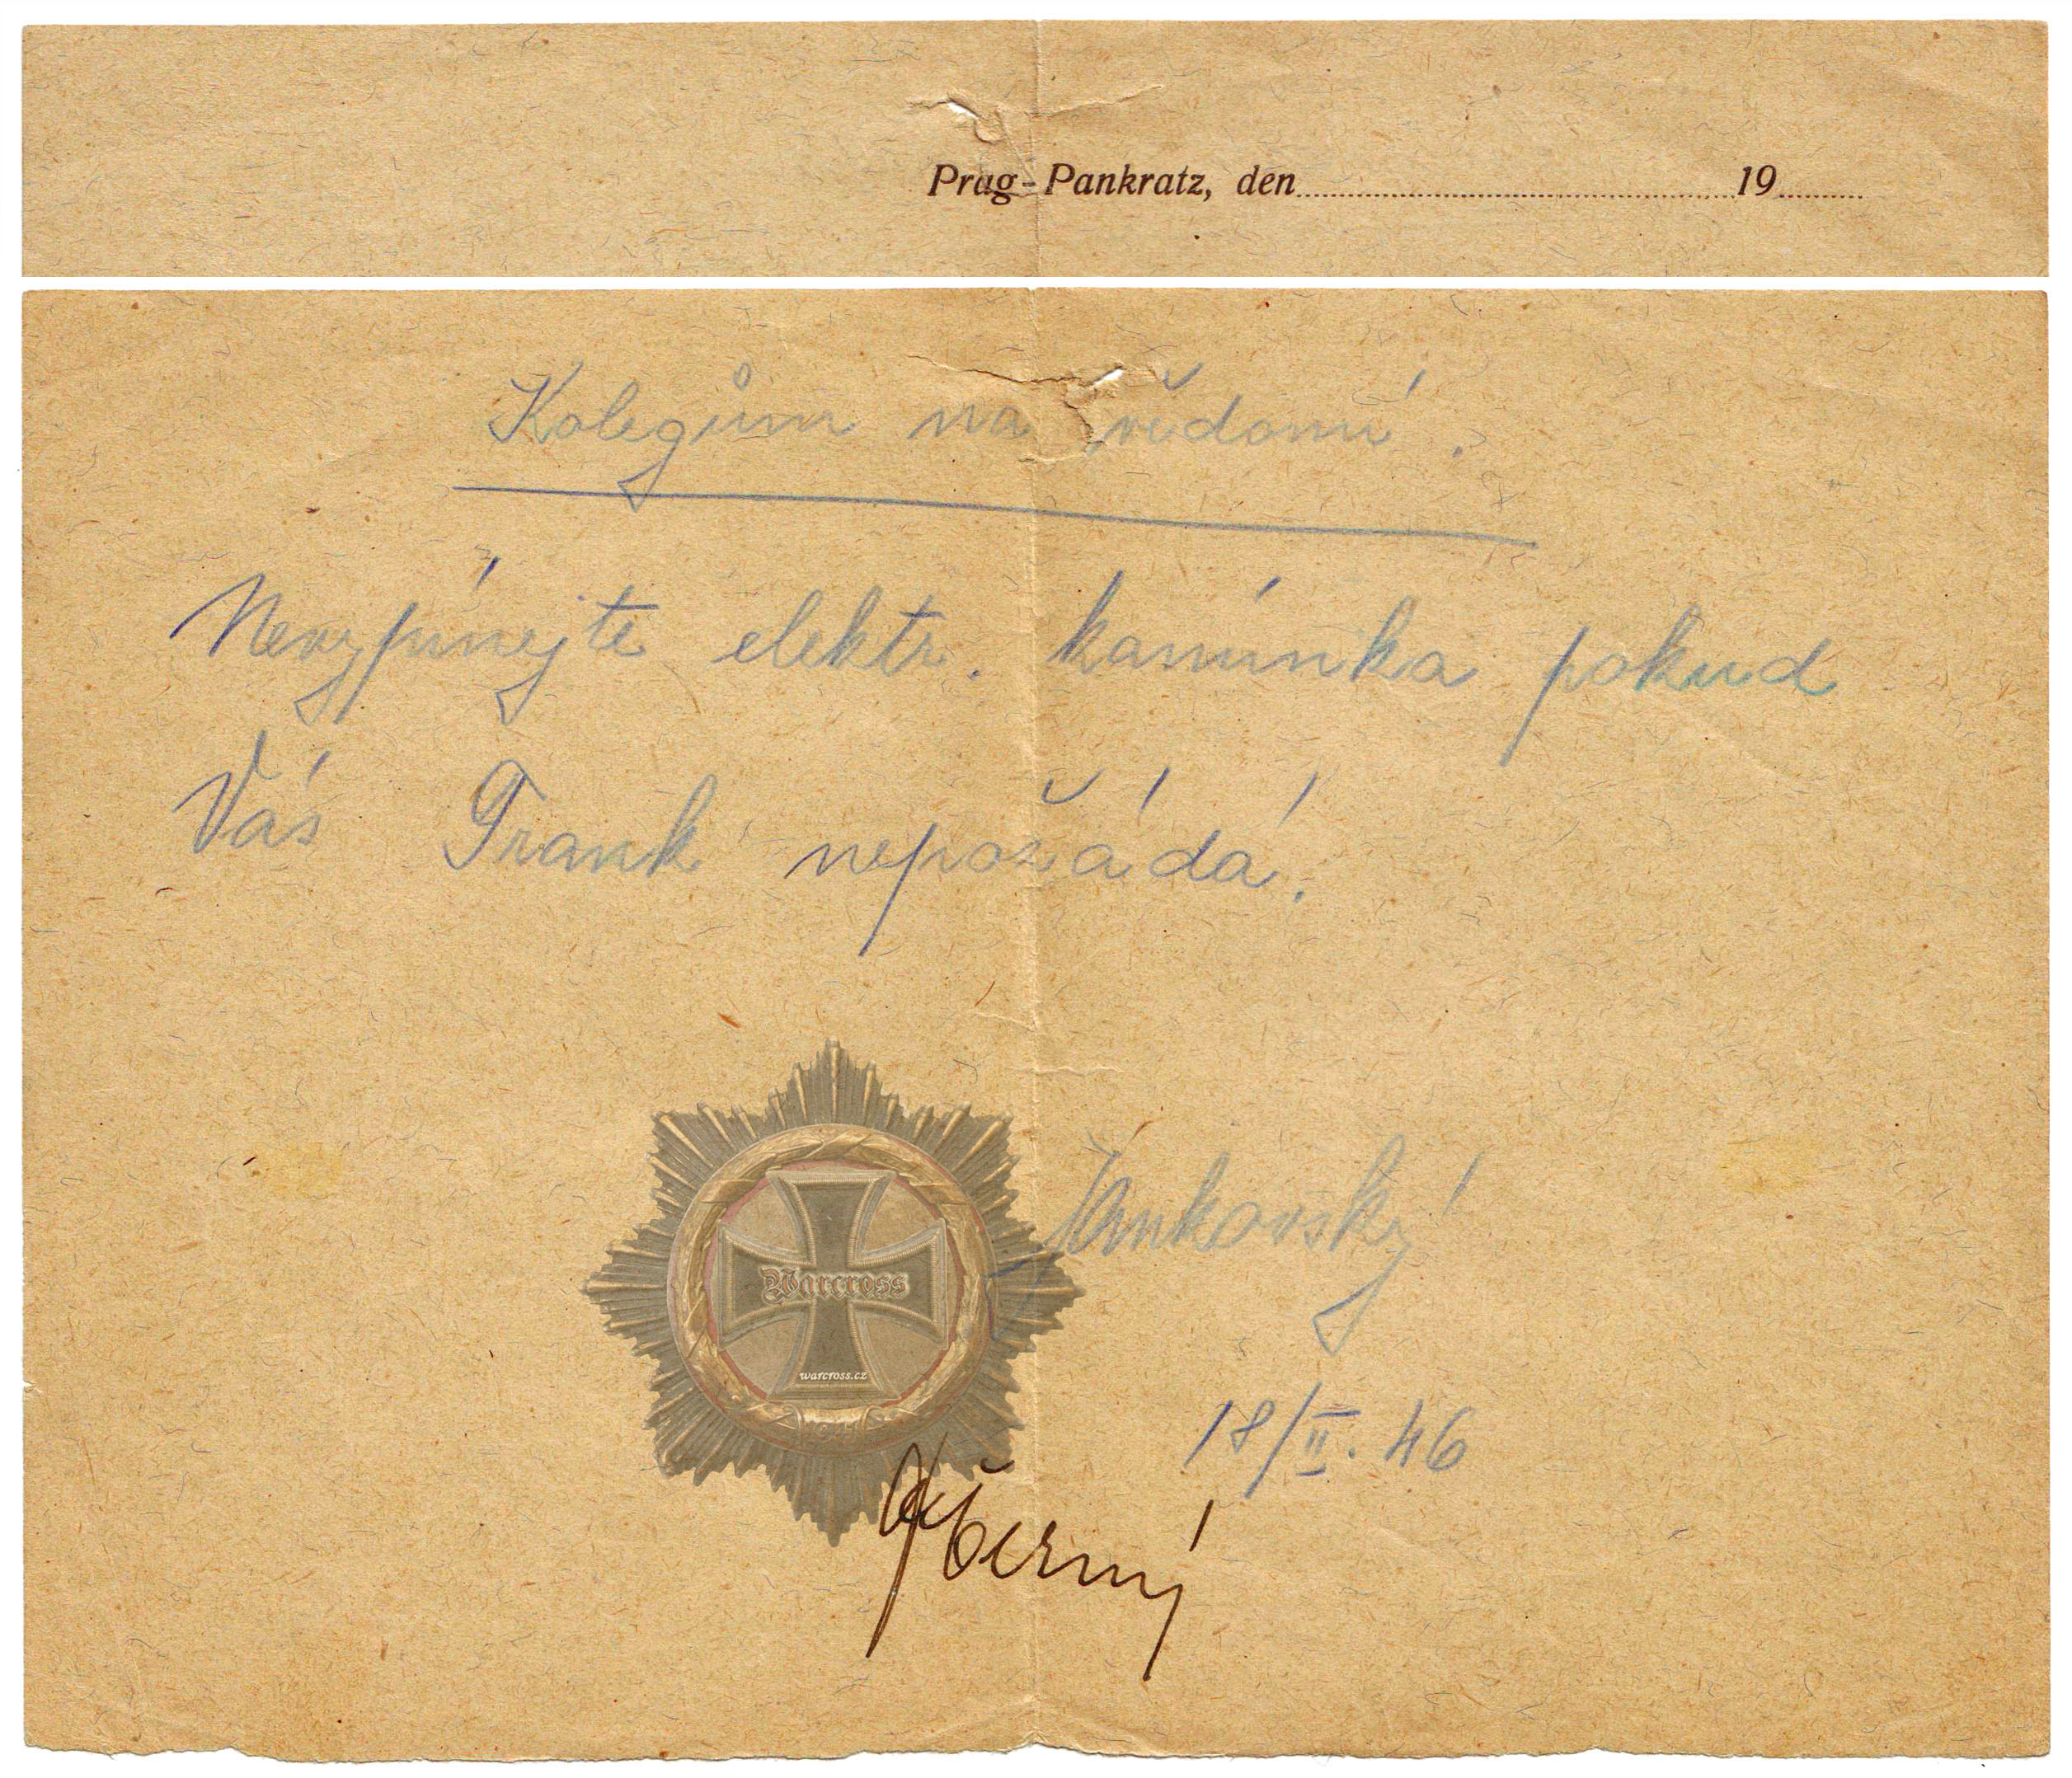 Prag-Pankratz, den 19
Kolegům na vědomí.
Nevypínejte elektr. kamínka pokud
Vás Frank nepožádá.
Jankovský
Warcross
warcross.cz
18/II. 46
Černý